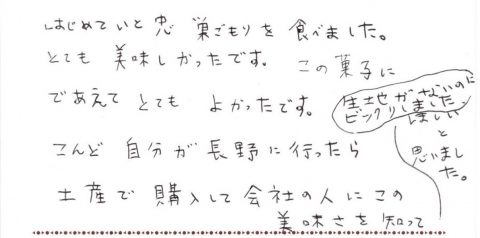 はじめていと忠 巣ごもりを 食べました。
とても 美味しかったです。 この菓子に
であえて とても よかったです。
こんど 自分が長野に行ったら
土産で購入して会社の人にこの
美味さを知って
ほしい
と
思いまし
た。
生地が
ビックリしました